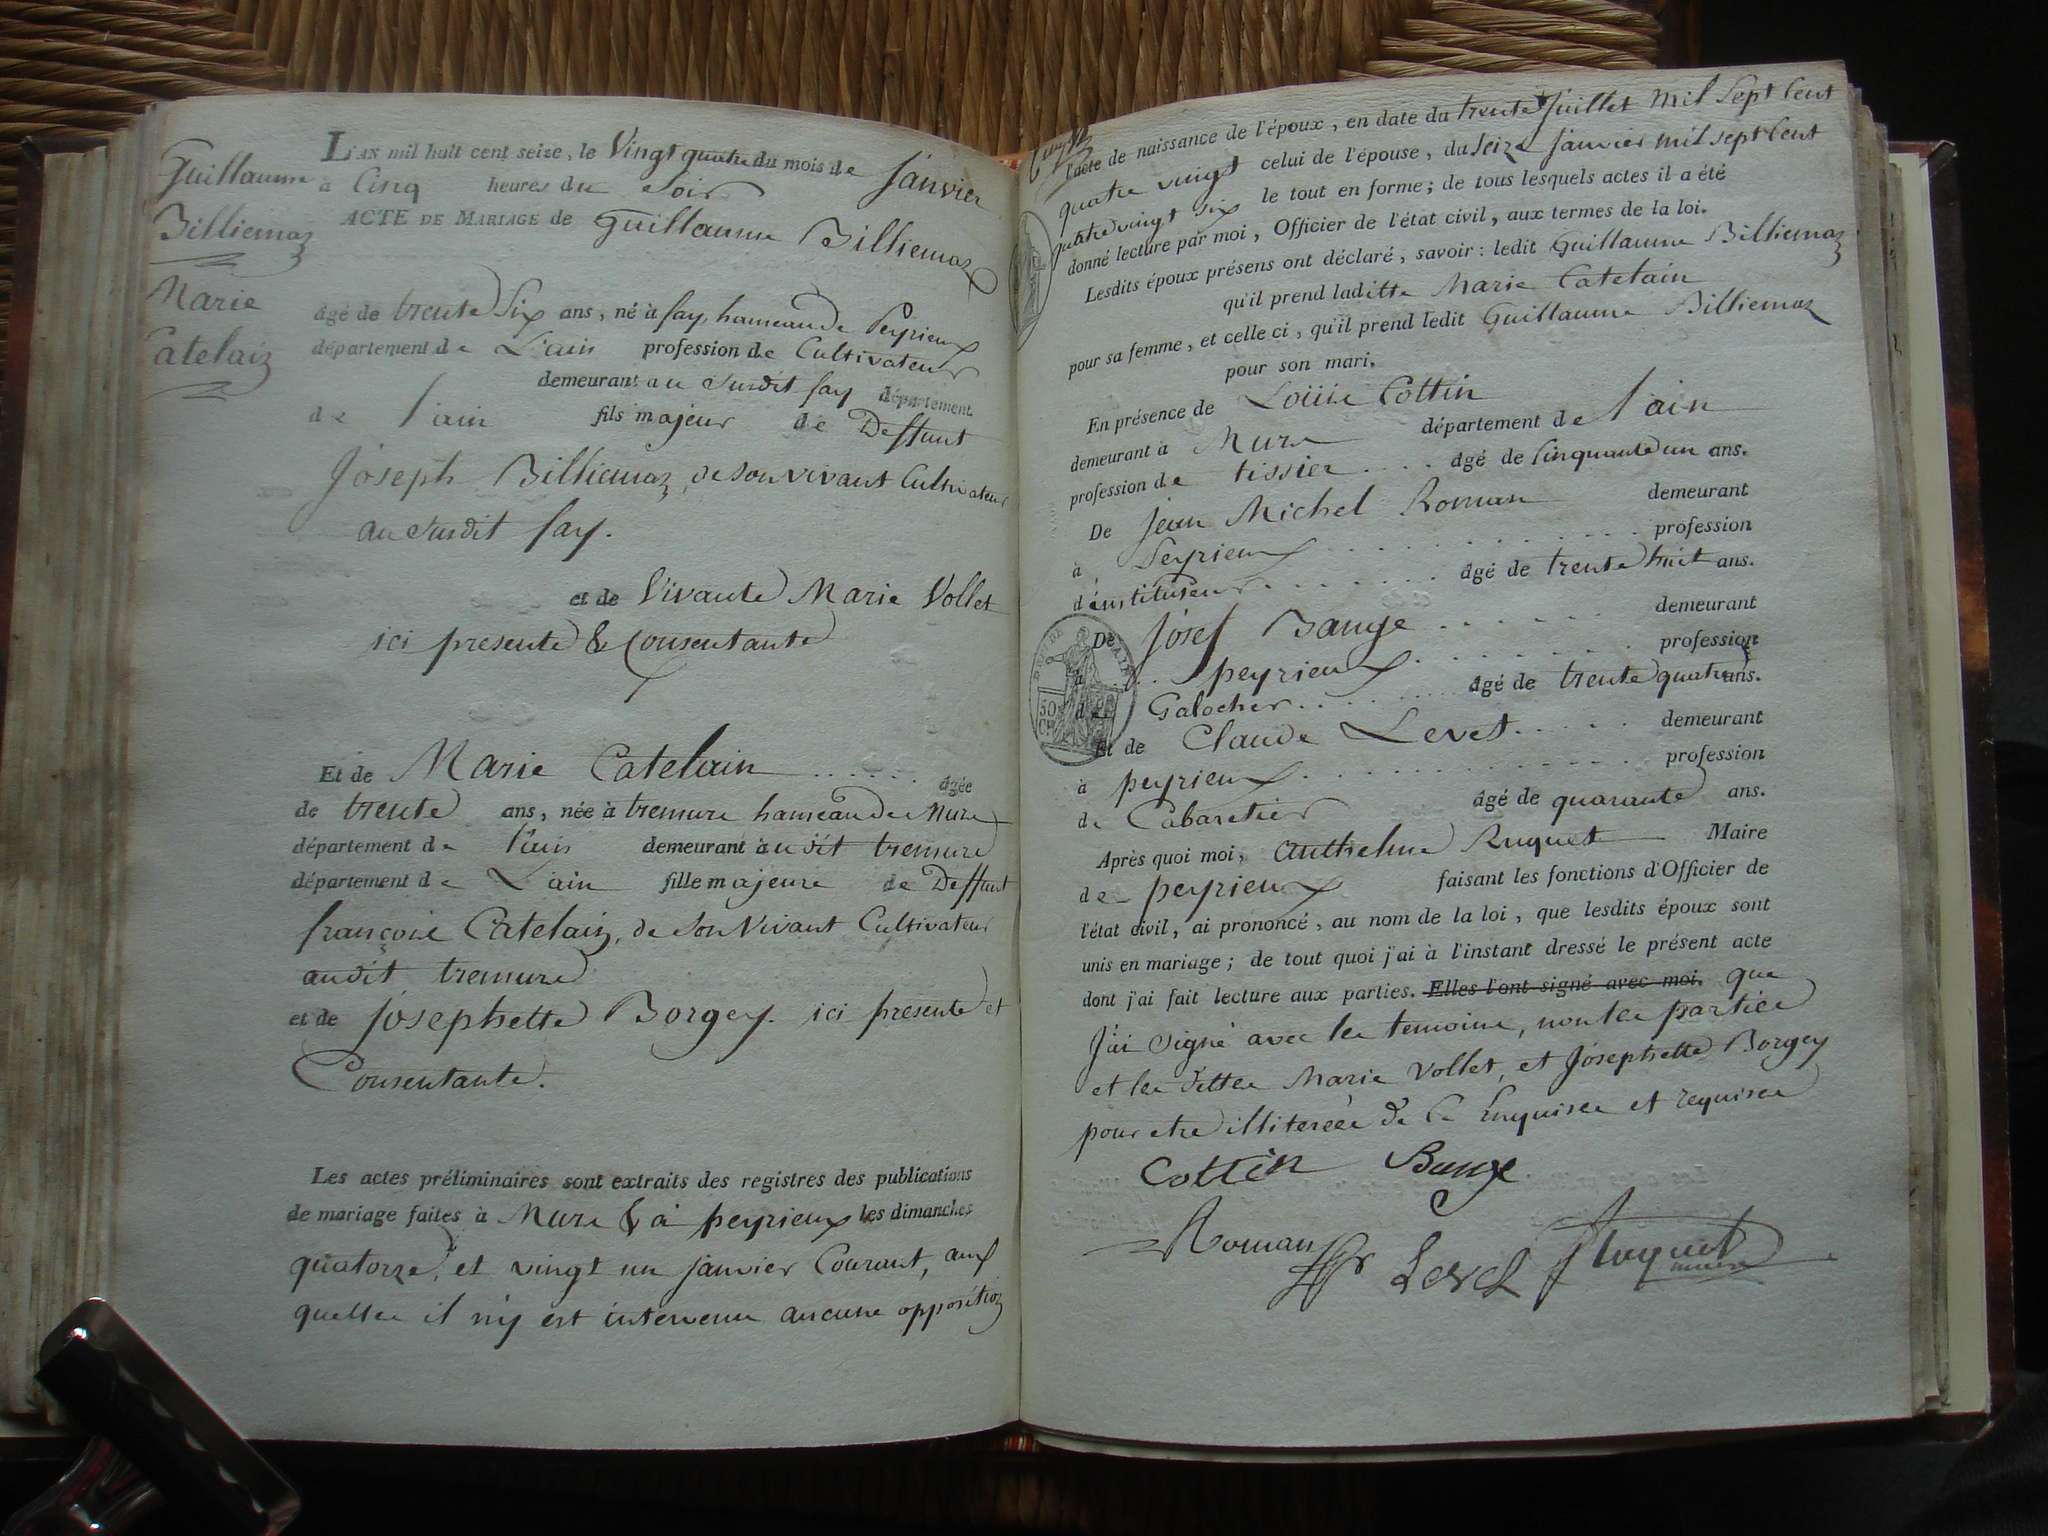 Guillaume
Billiemaz
Marie
Catelain
L'AN mil huit cent seize, le Vingt quatre du mois de janvier
à Cinq heures du soir
ACTE DE MARIAGE de Guillaume Billiemaz
âgé de trente Six ans, né à fay, hameau de Peyrieux
département de L'ain profession de Cultivateur
demeurant au surdit fay département
de l'ain fils majeur de Deffunt
Joseph Billiemaz, de son vivant Cultivateur
au surdit fay.
et de Vivante Marie Vollet
ici presente & Consentante
Et de Marie Catelain ...... âgée
de trente ans, née à tremure hameau de Mure
département de l'ain demeurant audit tremure
département de L'ain fille majeure de Deffunt
françois Catelain, de son Vivant Cultivateur
audit tremure
et de josephette Borgey. ici presente et
Consentante.
Les actes préliminaires sont extraits des registres des publications
de mariage faites à Mure & à peyrieux les dimanches
quatorze, et vingt un janvier Courant, aux
quelles il n'y est intervenu aucune opposition
l'acte de naissance de l'époux, en date du trente juillet mil Sept Cent
quatre vingt celui de l'épouse, du Seize janvier mil sept Cent
quatre vingt six le tout en forme; de tous lesquels actes il a été
donné lecture par moi, Officier de l'état civil, aux termes de la loi.
Lesdits époux présens ont déclaré, savoir: ledit Guillaume Billiemaz
qu'il prend laditte Marie Catelain
pour sa femme, et celle ci, qu'il prend ledit Guillaume Billiemaz
pour son mari.
En présence de Louis Cottin
demeurant à Mure département de l'ain
profession de tissier .... âgé de Cinquante un ans.
De jean Michel Roman demeurant
à Peyrieux ............ profession
d'instituteur ........ âgé de trente huit ans.
De josef Bauge ..... demeurant
à .. peyrieux ........ profession
de Galocher ...... âgé de trente quatre ans.
Et de Claude Levet ..... demeurant
à peyrieux ............ profession
de Cabaretier âgé de quarante ans.
Après quoi moi, Anthelme Ruquet Maire
de peyrieux faisant les fonctions d'Officier de
l'état civil, ai prononcé, au nom de la loi, que lesdits époux sont
unis en mariage; de tout quoi j'ai à l'instant dressé le présent acte
dont j'ai fait lecture aux parties. Elles l'ont signé avec moi. que
J'ai signé avec les temoins, non les parties
et les dittes Marie Vollet, et josephette Borgey
pour etre illiterées de ce Enquises et requises
Cottin Bauge
Roman Levet Ruquet
maire
30